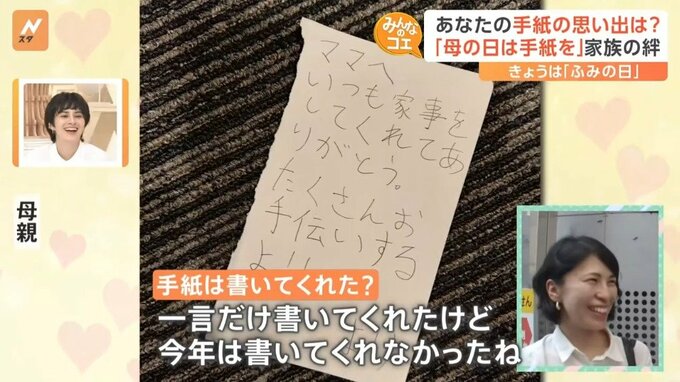 Nスタ
みんなのコエ
あなたの手紙の思い出は?
「母の日は手紙を」家族の絆
きょうは「ふみの日」
ママへ
いつも家事を
してくれてあ
りがとう。
たくさんお
手伝いする
よ!!
母親
手紙は書いてくれた?
一言だけ書いてくれたけど
今年は書いてくれなかったね